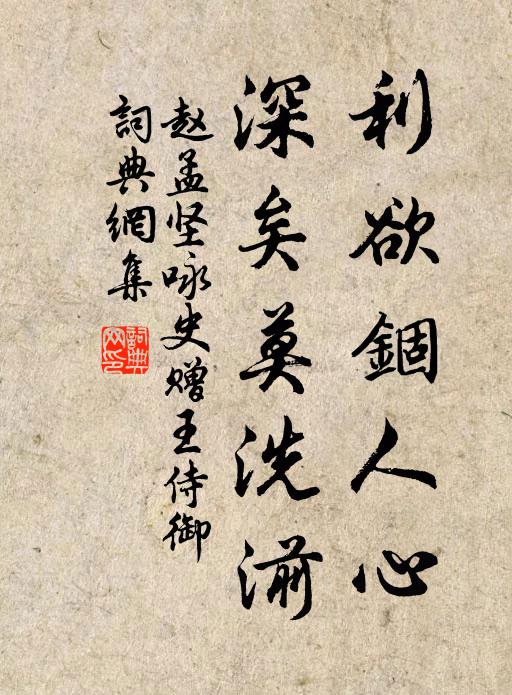 利欲錮人心
深矣莫洗湔
赵孟坚咏史赠王侍御
詞典網集
詞典網印